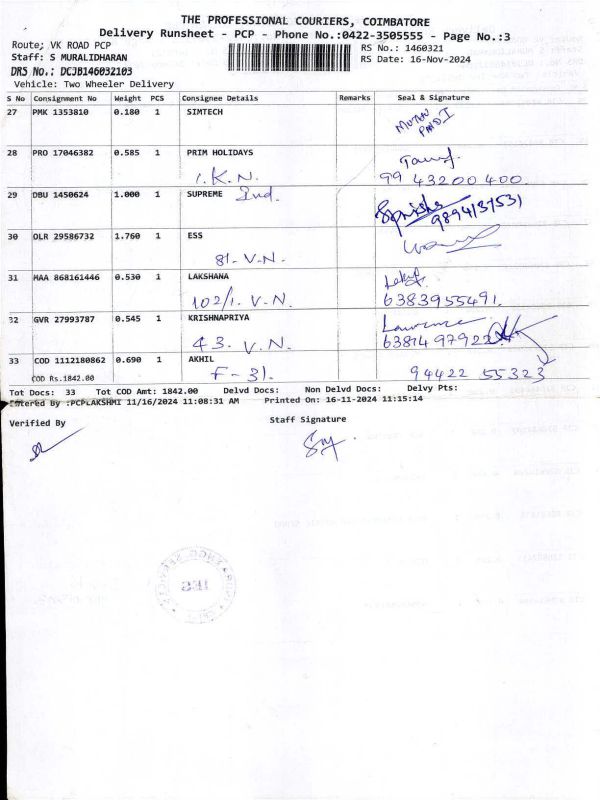 THE PROFESSIONAL COURIERS, COIMBATORE
Delivery Runsheet - PCP - Phone No.:0422-3505555 - Page No.:3
Route; VK ROAD PCP RS No.: 1460321
Staff: S MURALIDHARAN RS Date: 16-Nov-2024
DRS No.: DCJB146032103
Vehicle: Two Wheeler Delivery
S No Consignment No Weight PCS Consignee Details Remarks Seal & Signature
27 PMK 1353810 0.180 1 SIMTECH
28 PRO 17046382 0.585 1 PRIM HOLIDAYS
I.K.N. 99 43200 400
29 DBU 1450624 1.000 1 SUPREME Ind.
9894137531
30 OLR 29586732 1.760 1 ESS
81. V.N.
31 MAA 868161446 0.530 1 LAKSHANA
102/1. V.N. 6383955491.
32 GVR 27993787 0.545 1 KRISHNAPRIYA Lawrence
43. V.N. 6381497922
33 COD 1112180862 0.690 1 AKHIL
COD Rs.1842.00 F-31. 94422 55323
Tot Docs: 33 Tot COD Amt: 1842.00 Delvd Docs: Non Delvd Docs: Delvy Pts:
Entered By :PCPLAKSHMI 11/16/2024 11:08:31 AM Printed On: 16-11-2024 11:15:14
Verified By Staff Signature